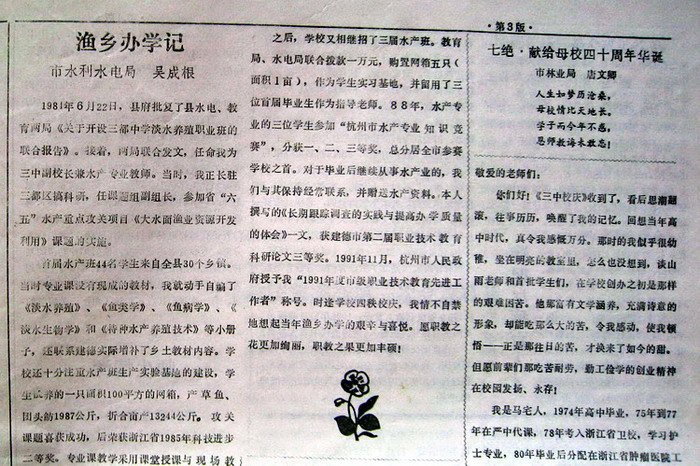 ·第3版·
渔乡办学记
市水利水电局 吴成根
1984年6月22日，县府批复了县水电、教
育两局《关于开设三都中学淡水养殖职业班的
联合报告》。接着，两局联合发文，任命我为
三中副校长兼水产专业教师。当时，我正长驻
三都区搞科研，任课题组副组长，参加省“六
五”水产重点攻关项目《大水面渔业资源开发
利用》课题的实施。
首届水产班44名学生来自全县30个乡镇。
当时专业课没有现成的教材，我就动手自编了
《淡水养殖》、《鱼类学》、《鱼病学》、《
淡水生物学》和《特种水产养殖技术》等小册
子，还联系建德实际增补了乡土教材内容。学
校还十分注重水产班生产实验基地的建设，学
生试养的一只面积100平方的网箱，产草鱼、
团头鲂1987公斤，折合亩产13244公斤。攻关
课题喜获成功，后荣获浙江省1985年科技进步
二等奖。专业课教学采用课堂授课与现场教
之后，学校又相继招了三届水产班。教育
局、水电局联合拨款一万元，购置网箱五只（
面积1亩），作为学生实习基地，并留用了三
位首届毕业生作为指导老师。88年，水产专
业的三位学生参加“杭州市水产专业知识竞
赛”，分获一、二、三等奖，总分居全市参赛
学校之首。对于毕业后继续从事水产业的，我
们与其保持经常联系，并赠送水产资料。本人
撰写的《长期跟踪调查的实践与提高办学质量
的体会》一文，获建德市第二届职业技术教育
科研论文三等奖。1991年11月，杭州市人民政
府授予我“1991年度市级职业技术教育先进工
作者”称号。时逢学校四秩校庆，我情不自禁
地想起当年渔乡办学的艰辛与喜悦。愿职教之
花更加绚丽，职教之果更加丰硕！
七绝·献给母校四十周年华诞
市林业局 唐文卿
人生如梦历沧桑，
母校情比天地长。
学子而今年不惑，
恩师教诲未敢忘！
敬爱的老师们：
你们好！《三中校庆》收到了，看后思潮翻
滚，往事历历，唤醒了我的记忆。回想当年高
中时代，真令我感慨万分。那时的我似乎很幼
稚，坐在明亮的教室里，怎么也没想到，谈山
雨老师和首批学生们，在学校创办之初是那样
的艰难困苦。他那富有文学涵养，充满诗意的
形象，却能吃那么大的苦，令我感动，使我顿
悟——正是那往日的苦，才换来了如今的甜。
但愿前辈们那吃苦耐劳，勤工俭学的创业精神
在校园发扬、永存！
我是马宅人，1974年高中毕业，75年到77
年在严中代课，78年考入浙江省卫校，学习护
士专业，80年毕业后分配在浙江省肿瘤医院工